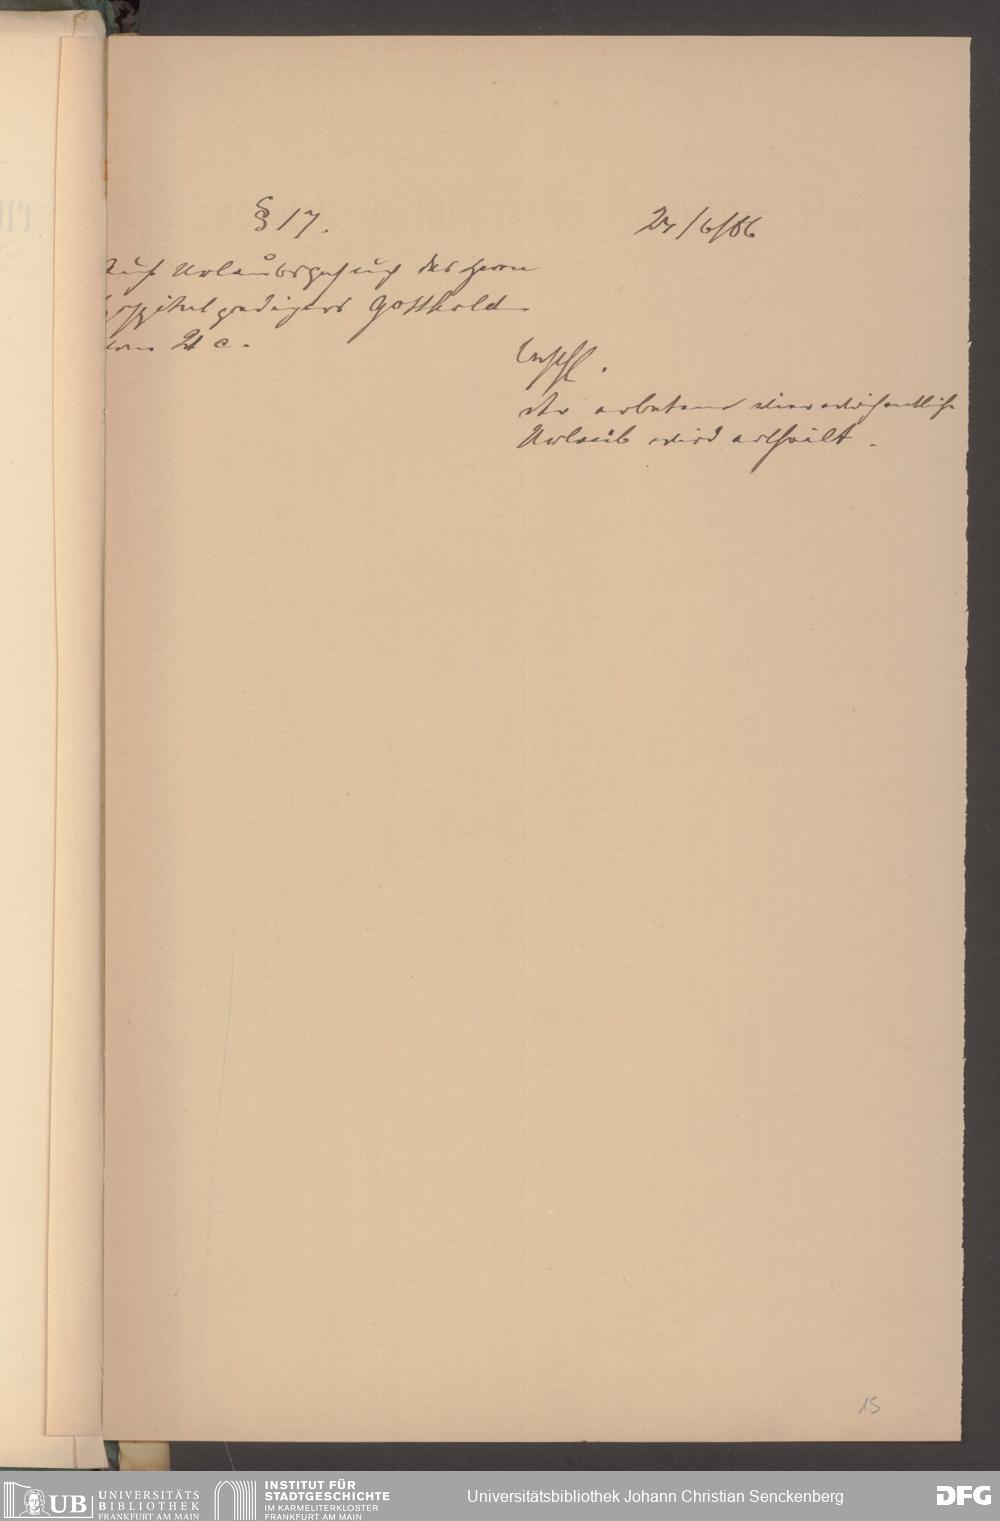 § 17.
24/6/86
Auf Urlaubsgesuch des Herrn
Hospitalpredigers Gotthold
vom 21 c.
Beschl.
der erbetene vierwöchentliche
Urlaub wird ertheilt.
15
UB UNIVERSITÄTS
BIBLIOTHEK
FRANKFURT AM MAIN
INSTITUT FÜR
STADTGESCHICHTE
IM KARMELITERKLOSTER
FRANKFURT AM MAIN
Universitätsbibliothek Johann Christian Senckenberg
DFG